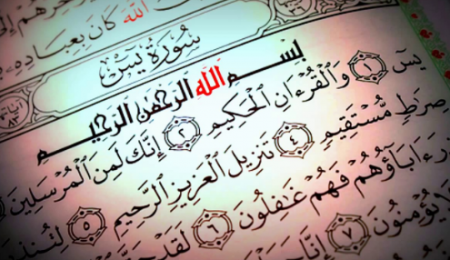 الله كَانَ بِعِبَادِهِ
سُورَةُ يسٓ
بِسْمِ ٱللَّهِ ٱلرَّحْمَٰنِ ٱلرَّحِيمِ
يسٓ ١ وَٱلْقُرْءَانِ ٱلْحَكِيمِ ٢ إِنَّكَ لَمِنَ ٱلْمُرْسَلِينَ
صِرَٰطٍ مُّسْتَقِيمٍ ٤ تَنزِيلَ ٱلْعَزِيزِ ٱلرَّحِيمِ ٥ لِتُنذِرَ
ءَابَآؤُهُمْ فَهُمْ غَٰفِلُونَ ٦ لَقَدْ
يُؤْمِنُونَ ٧ إِنَّا